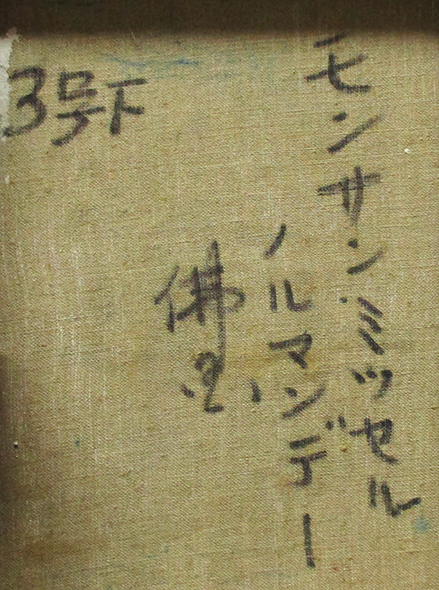 モンサン.ミツセル
ノルマンデー
佛国
3号F